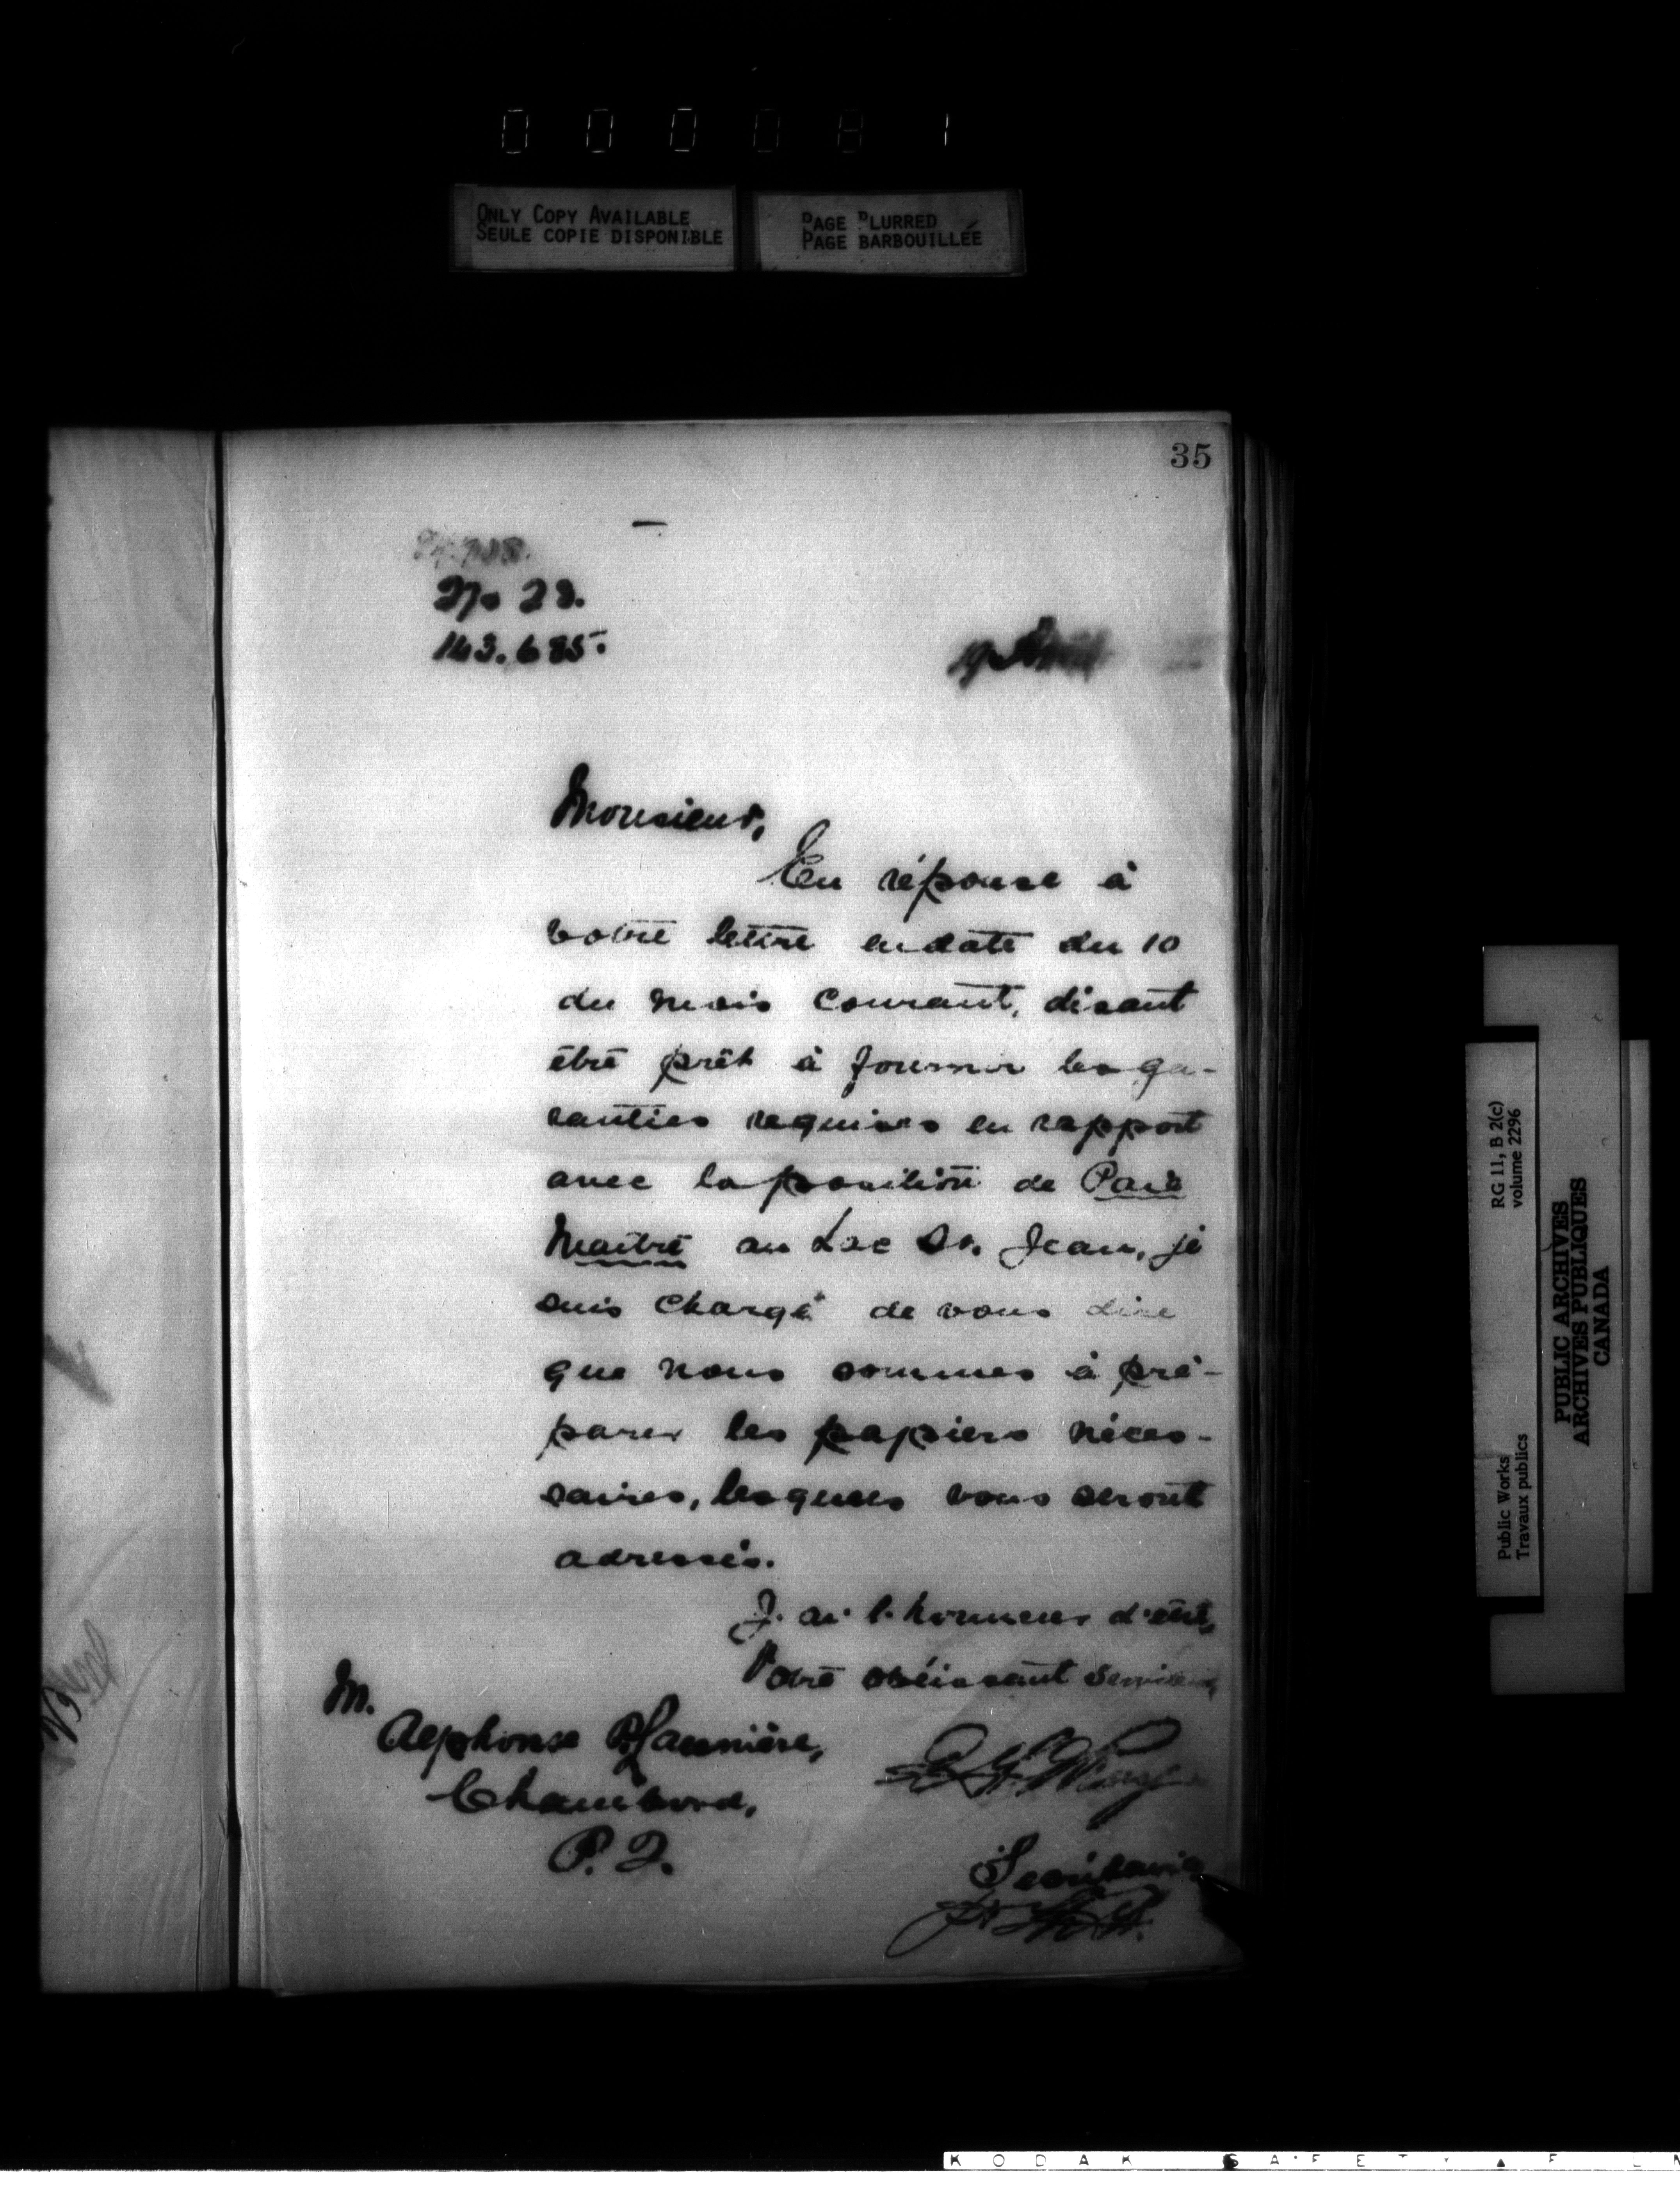 000081
ONLY COPY AVAILABLE
SEULE COPIE DISPONIBLE
PAGE BLURRED
PAGE BARBOUILLÉE
35
No 28.
143.685.
19
Monsieur,
En réponse à
votre lettre en date du 10
du mois courant, disant
être prêt à fournir les ga-
ranties requises en rapport
avec la position de Paie
Maître au Lac St. Jean, je
suis chargé de vous dire
que nous sommes à pré-
parer les papiers néces-
saires, lesquels vous seront
adressés.
J'ai l'honneur d'être,
Votre obéissant Serviteur
M.
Alphonse
Chambord,
P. Q.
Secrétaire
RG 11, B 2(c)
volume 2296
Public Works
Travaux publics
PUBLIC ARCHIVES
ARCHIVES PUBLIQUES
CANADA
KODAK SAFETY FILM